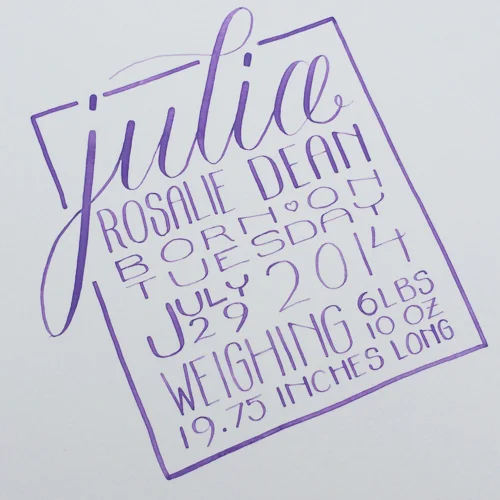 julia
ROSALIE DEAN
BORN ON
TUESDAY
JULY 29 2014
WEIGHING 6LBS 10 OZ
19.75 INCHES LONG